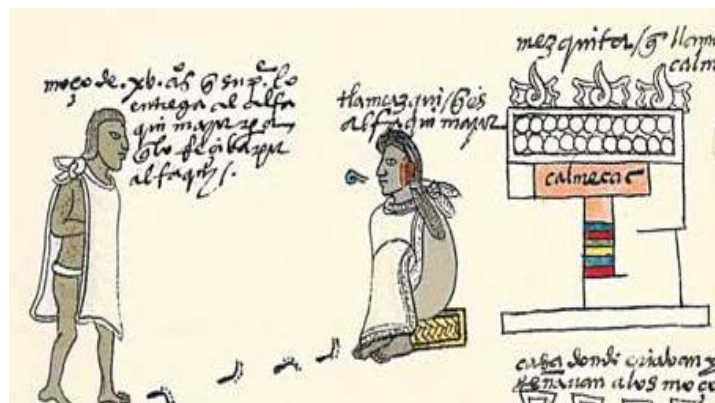 moço de .xv. aºs q su pᵉ. lo
entrega al alfa
qui mayor
q lo reçiba por
alfaqui.
tlamazqui / q es
alfaqui mayor
mezquita / q llama
calm
calmecac
casa donde criaban y
enseñavan a los moço